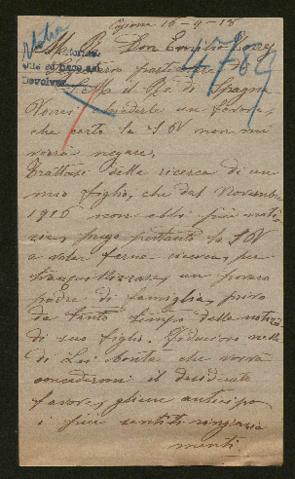 16-9-18
Don Emilio
4764
Devolver
il Re di Spagna
un favore,
che certo la S V non mi
vorrà negare.
Trattasi della ricerca di un
mio figlio, che dal Novembre
1916 non ebbi più noti
zie, prego pertanto la S V
a voler farne ricerca, per
tranquillizzare, un povero
padre di famiglia, privo
da tanto tempo delle notizie
di suo figlio. Fiducioso nella
di Lei bontà che vorrà
concedermi il desiderato
favore, gliene anticipo
i più sentiti ringrazia
menti.